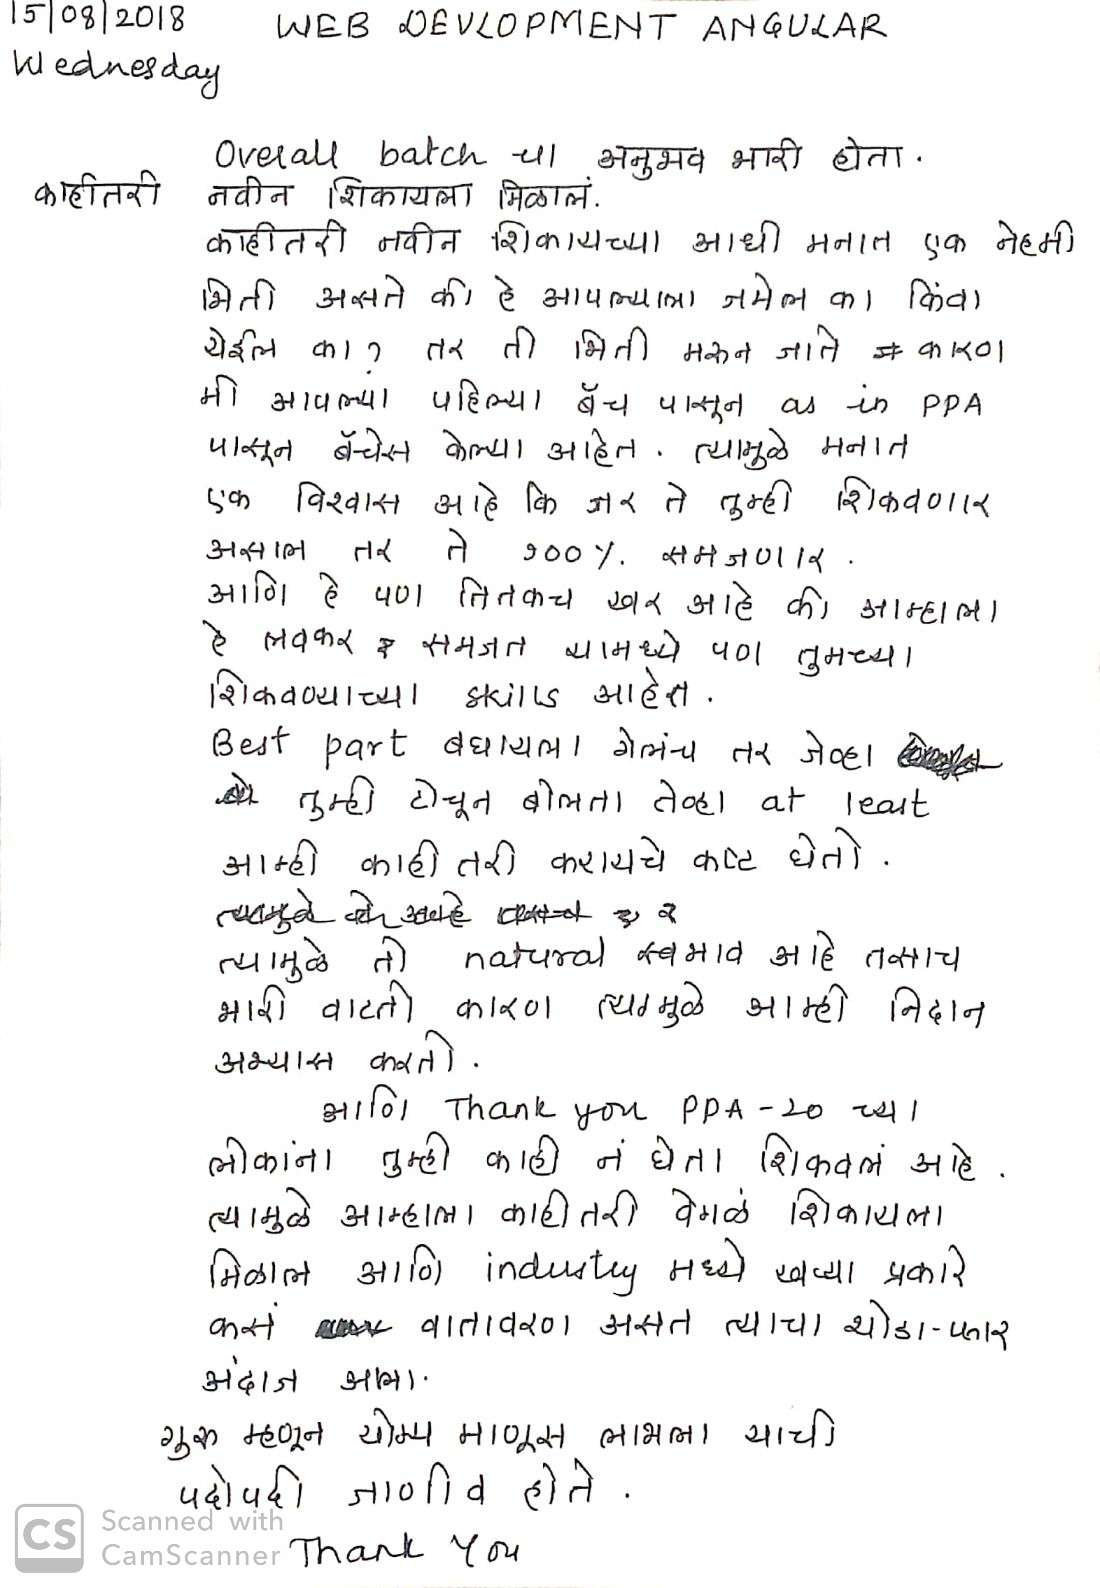 15/08/2018 WEB DEVLOPMENT ANGULAR
Wednesday
Overall batch चा अनुभव भारी होता.
काहीतरी नवीन शिकायला मिळालं.
काहीतरी नवीन शिकायच्या आधी मनात एक नेहमी
भिती असते की हे आपल्याला जमेल का किंवा
येईल का? तर ती भिती मरुन जाते कारण
मी आपल्या पहिल्या बॅच पासून as in PPA
पासून बॅचेस केल्या आहेत. त्यामुळे मनात
एक विश्वास आहे कि जर ते तुम्ही शिकवणार
असाल तर ते १००%. समजणार.
आणि हे पण तितकच खर आहे की आम्हाला
हे लवकर समजत यामध्ये पण तुमच्या
शिकवण्याच्या skills आहेत.
Best part बघायला गेलंच तर जेव्हा
तुम्ही टोचून बोलता तेव्हा at least
आम्ही काहीतरी करायचे कष्ट घेतो.
त्यामुळे तो natural स्वभाव आहे तसाच
भारी वाटतो कारण त्यामुळे आम्ही निदान
अभ्यास करतो.
आणि Thank you PPA-20 च्या
लोकांना तुम्ही काही नं घेता शिकवलं आहे.
त्यामुळे आम्हाला काहीतरी वेगळं शिकायला
मिळाल आणि industry मध्ये खऱ्या प्रकारे
कसं वातावरण असत त्याचा थोडा-फार
अंदाज आला.
गुरू म्हणून योग्य माणूस लाभला याची
पदोपदी जाणीव होते.
Thank You
CS Scanned with
CamScanner